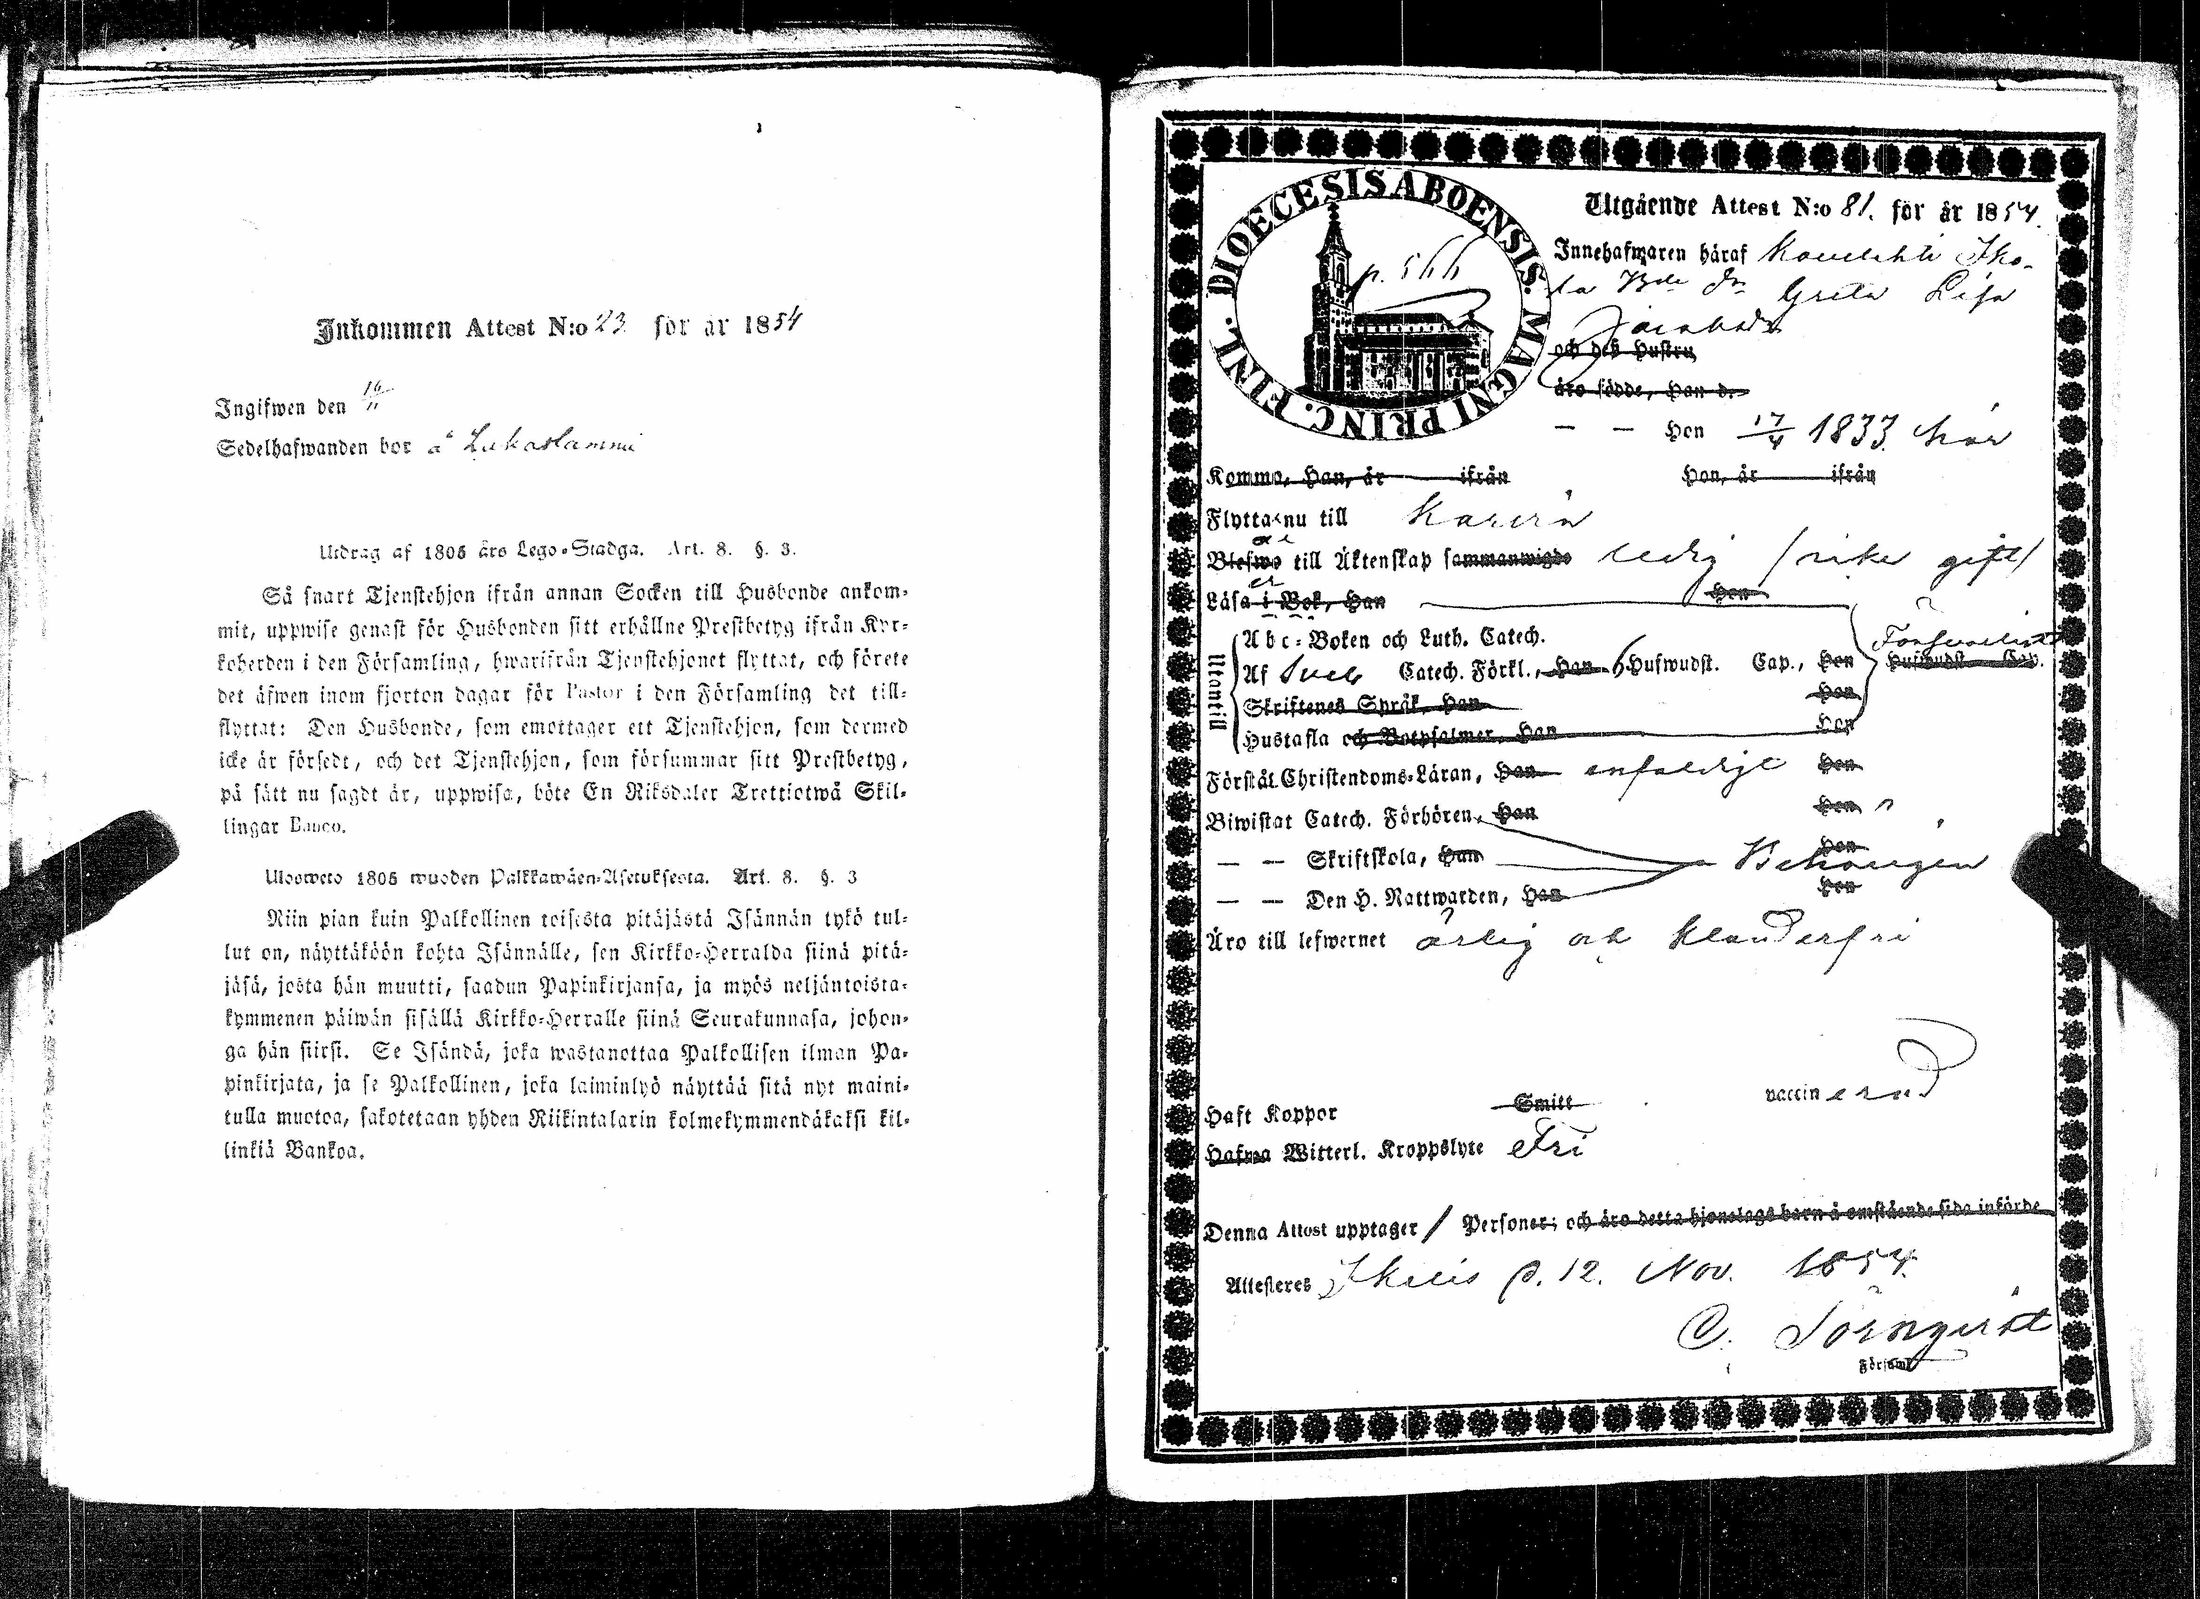 Inkommen Attest N:o 23 för år 1854
Ingifwen den 16/11
Sedelhafwanden bor å Lukaslammi
Utdrag af 1805 års Lego-Stadga. Art. 8. §. 3.
Så snart Tjenstehjon ifrån annan Socken till Husbonde ankom-
mit, uppwise genast för Husbonden sitt erhållne Prestbetyg ifrån Kyr-
koherden i den Församling, hwarifrån Tjenstehjonet flyttat, och förete
det äfwen inom fjorton dagar för Pastor i den Församling det till-
flyttat: Den Husbonde, som emottager ett Tjenstehjon, som dermed
icke är försedt, och det Tjenstehjon, som försummar sitt Prestbetyg,
på sätt nu sagdt är, uppwisa, böte En Riksdaler Trettiotwå Skil-
lingar Banco.
Ulosweto 1805 wuoden Palkkawäen-Asetuksesta. Art. 8. §. 3
Niin pian kuin Palkollinen toisesta pitäjästä Isännän tykö tul-
lut on, näyttäköön kohta Isännälle, sen Kirkko-Herralda siinä pitä-
jäsä, josta hän muutti, saadun Papinkirjansa, ja myös neljäntoista-
kymmenen päiwän sisällä Kirkko-Herralle siinä Seurakunnasa, johon-
ga hän siirsi. Se Isändä, joka wastanottaa Palkollisen ilman Pa-
pinkirjata, ja se Palkollinen, joka laiminlyö näyttää sitä nyt maini-
tulla muotoa, sakotetaan yhden Riikintalarin kolmekymmendäkaksi kil-
linkiä Bankoa.
DIOECESIS ABOENSIS. MAGNI PRINC. FINL.
p. 566
Utgående Attest N:o 81. för år 1854.
Innehafwaren häraf
Greta Lisa
och dess Hustru
äro födde, Han d.
— — Hon 17/4 1833 här
Komma, Han, år ifrån Hon, år ifrån
Flytta nu till Karvia
Blefwo till Äktenskap sammanwigde ledig (icke gift)
Läsa i Bok, Han Hon
Utantill
Abc-Boken och Luth. Catech.
Af Sveb Catech. Förkl., Han 6 Hufwudst. Cap., Hon Hufwudst. Cap.
Skriftenes Språk, Han Hon
Hustafla och Botpsalmer, Han Hon
Förstå Christendoms-Läran, Han enfaldigt Hon
Biwistat Catech. Förhören, Han Hon
— — Skriftskola, Han Hon
— — Den H. Nattwarden, Han Behörigen Hon
Äro till lefwernet ärlig och klanderfri
Haft Koppor Smitt vaccinerad
Hafwa Witterl. Kroppslyte Fri
Denna Attest upptager 1 Personer; och äro detta hjonelags barn å omstående sida införde
Attesteres Ikalis d. 12. Nov. 1854.
C. Törnqvist
Församl.